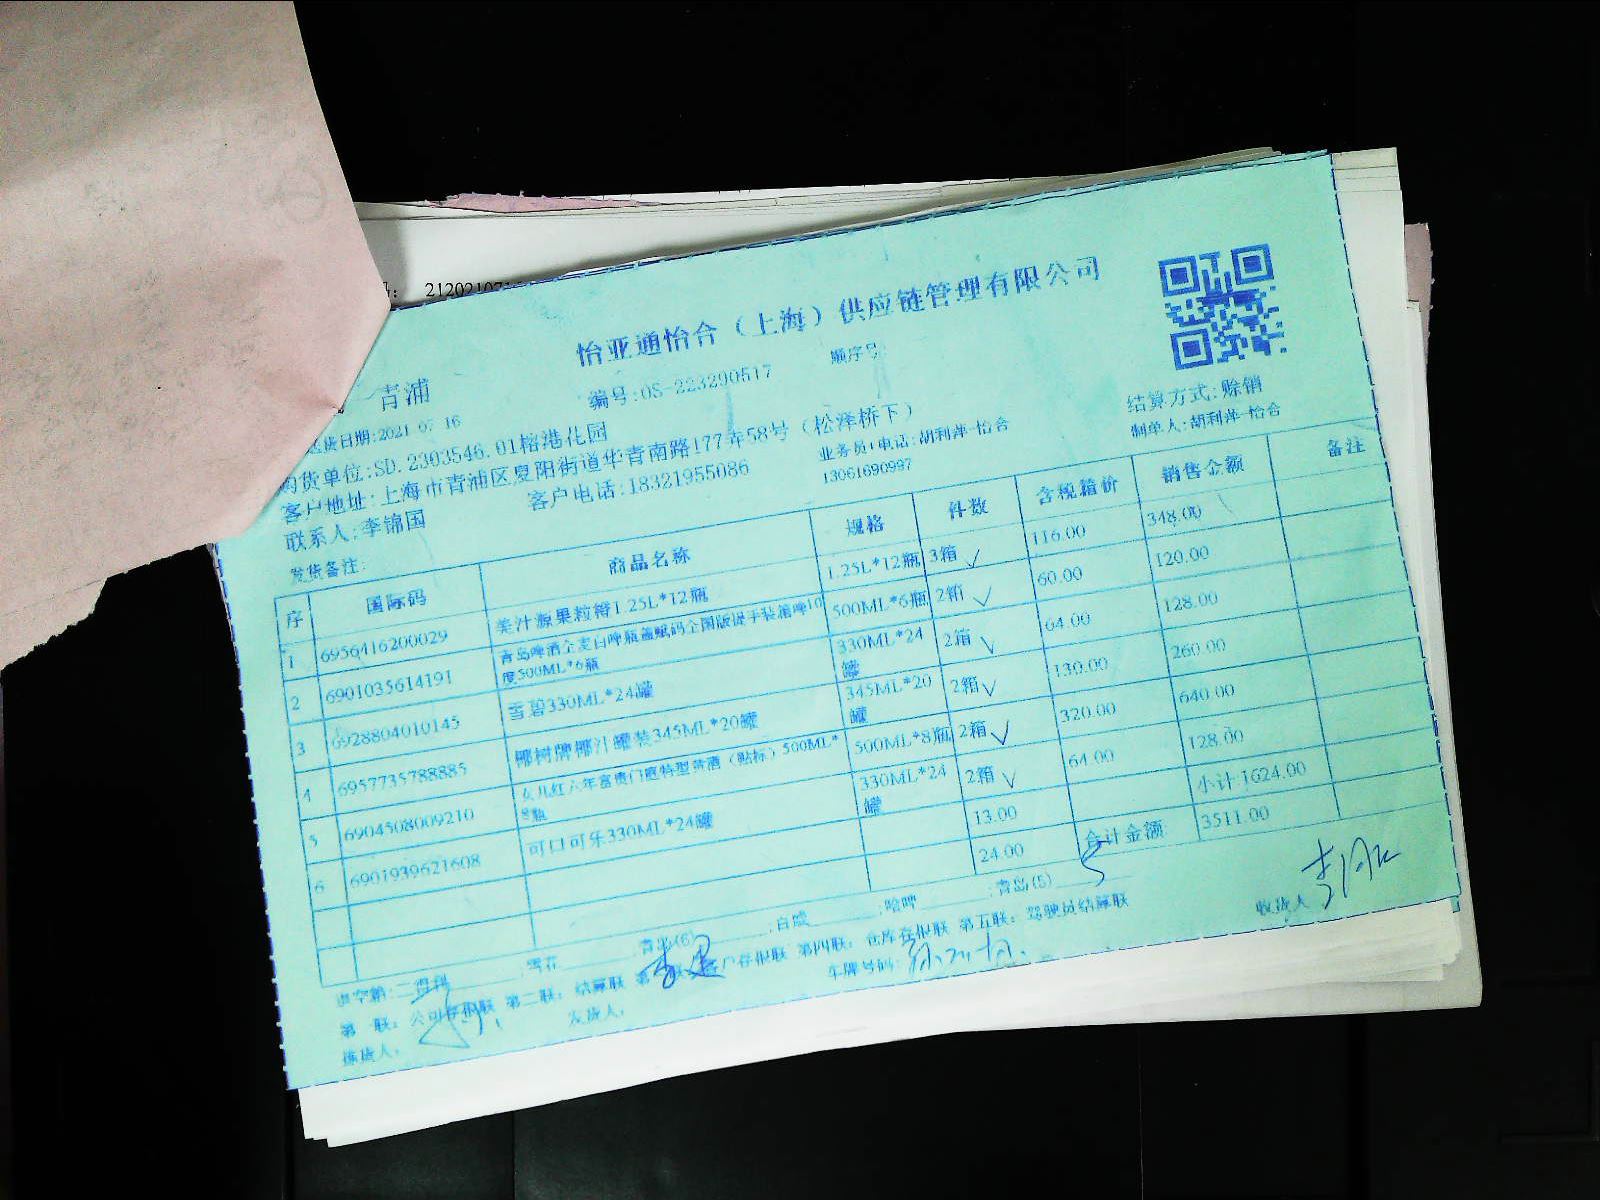 212021071
怡亚通怡合（上海）供应链管理有限公司
青浦
编号:OS-223290517
顺序号:
送货日期:2021 07 16
结算方式:赊销
购货单位:SD.2303546.01榕港花园
制单人:胡利萍-怡合
客户地址:上海市青浦区夏阳街道华青南路177弄58号（松泽桥下）
业务员+电话:胡利萍-怡合
13061690997
联系人:李锦国
客户电话:18321955086
发货备注:
序 国际码 商品名称 规格 件数 含税箱价 销售金额 备注
1 6956416200029 美汁源果粒橙1.25L*12瓶 1.25L*12瓶 3箱 116.00 348.00
2 6901035614191 青岛啤酒全麦白啤瓶盖赋码全国版提手装箱啤10度500ML*6瓶 500ML*6瓶 2箱 60.00 120.00
3 6928804010145 雪碧330ML*24罐 330ML*24罐 2箱 64.00 128.00
4 6957735788885 椰树牌椰汁罐装345ML*20罐 345ML*20罐 2箱 130.00 260.00
5 6904508009210 女儿红六年富贵门庭特型黄酒（贴标）500ML*8瓶 500ML*8瓶 2箱 320.00 640.00
6 6901939621608 可口可乐330ML*24罐 330ML*24罐 2箱 64.00 128.00
13.00 小计:1624.00
24.00 合计金额: 3511.00
退空箱:二得利 ;雪花 ;青岛(6) ;百威 ;哈啤 ;青岛(5) 5
第一联：公司存根联 第二联：结算联 第三联：客户存根联 第四联：仓库存根联 第五联：驾驶员结算联
拣货人:
发货人:
车牌号码:
收货人